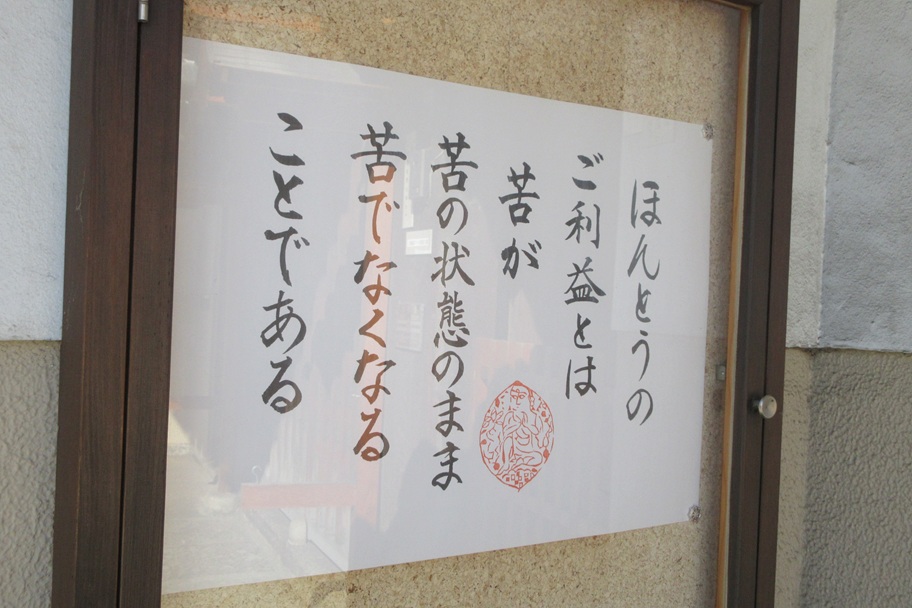 ほんとうの
ご利益とは
苦が
苦の状態のまま
苦でなくなる
ことである